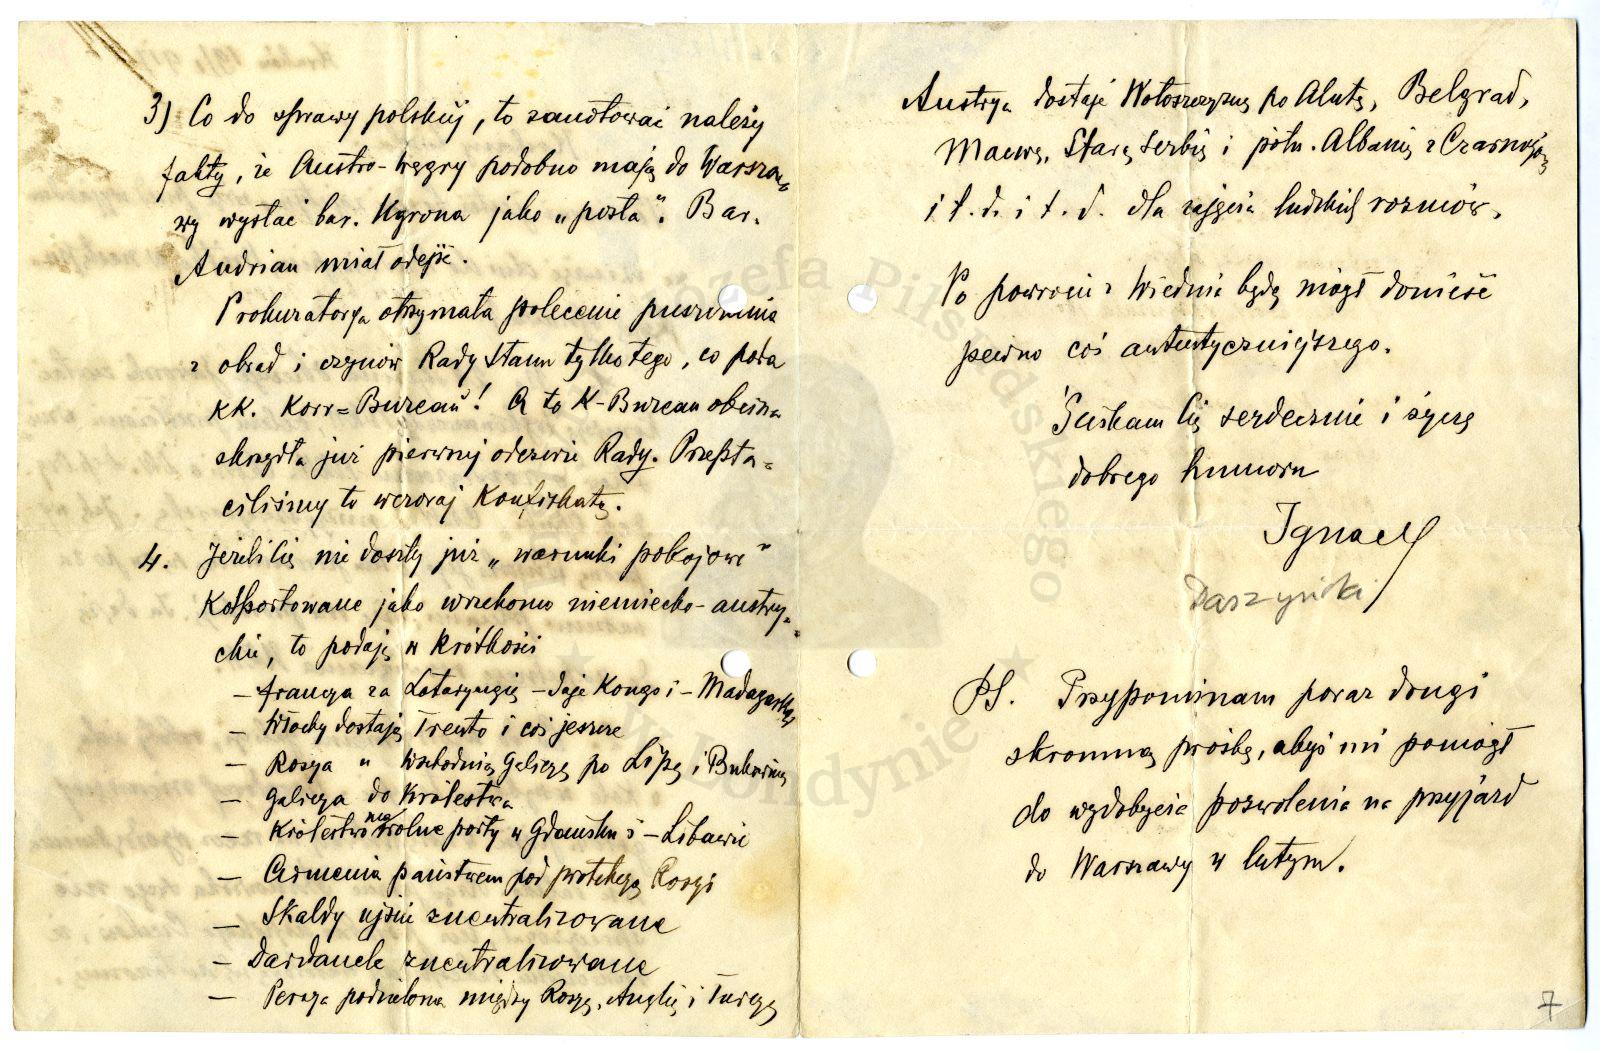 3) Co do sprawy polskiej, to zanotować należy
fakty, że Austro-Węgry podobno mają do Warsza-
wy wysłać bar. Ugrona jako „posła". Bar.
Andrian miał odejść.
Prokuratorya otrzymała polecenie puszczania
z obrad i czynów Rady Stanu tylko tego, co poda
KK. Korr=Bureau! A to K-Bureau obcina
skrzydła już pierwszej odezwie Rady. Przepła-
ciliśmy to wczoraj Konfiskatą.
4. Jeżeli Cię nie doszły już „warunki pokojowe"
Kolportowane jako wrzekomo niemiecko-austry-
ckie, to podaję w krótkości
— francya za Lotaryngię – daje Kongo i – Madagaskar
— Włochy dostają Trento i coś jeszcze
— Rosya " Wschodnią Galicyę po Lipę i Bukowinę
— Galicya do Królestwa
— Królestwo ma wolne porty w Gdańsku i – Libawie
— Armenia państwem pod protekcyą Rosyi
— Skaldy ujście zneutralizowane
— Dardanele zneutralizowane
— Persya podzielona między Rosyę, Anglię i Turcyę
Austrya dostaje Wołoszczyznę po Alutę, Belgrad,
Macwę, Starą Serbię i półn. Albanię z Czarnogórą
i t. d. i t. d. dla zajęcia ludzkich rozmów.
Po powrocie z Wiednia będę mógł donieść
pewno coś autentyczniejszego.
Ściskam Cię serdecznie i życzę
dobrego humoru
Ignacy
Daszyński
PS. Przypominam poraz drugi
skromną prośbę, abyś mi pomógł
do wydobycia pozwolenia na przyjazd
do Warszawy w lutym.
7
Józefa Piłsudskiego
w Londynie